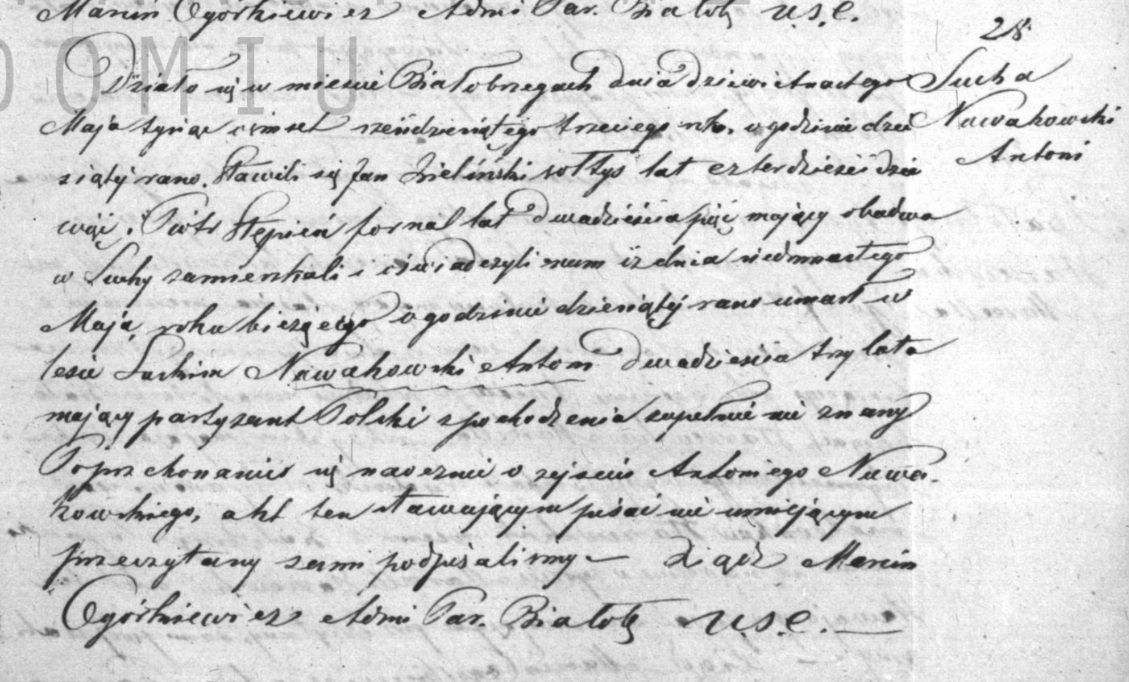 Marcin Ogórkiewicz Admi Par. Białob U.S.C.
28
DOMIU
Działo się w mieście Białobrzegach dnia dziewiętnastego
Sucha
Maja tysiąc ośmset sześdziesiątego trzeciego roku, o godzinie dzie
Nawakowski
siątéj rano. Stawili się Jan Zieliński sołtys lat czterdzieści dzie
Antoni
więć i Piotr Stępień fornal lat dwadzieścia pięć mający obadwa
w Suchy zamieszkali i oświadczyli nam iż dnia siedmnastego
Maja roku bieżącego o godzinie dziesiątéj rano umarł w
lesie Suchim Nawakowski Antoni dwadzieścia trzy lata
mający partyzant Polski z pochodzenia zupełnie nie znany
Po przekonaniu się naocznie o zejściu Antoniego Nawa-
kowskiego, akt ten stawającym pisać nie umiejącym
przeczytany sami podpisaliśmy — Xiądz Marcin
Ogórkiewicz Admi Par. Białob U.S.C. —